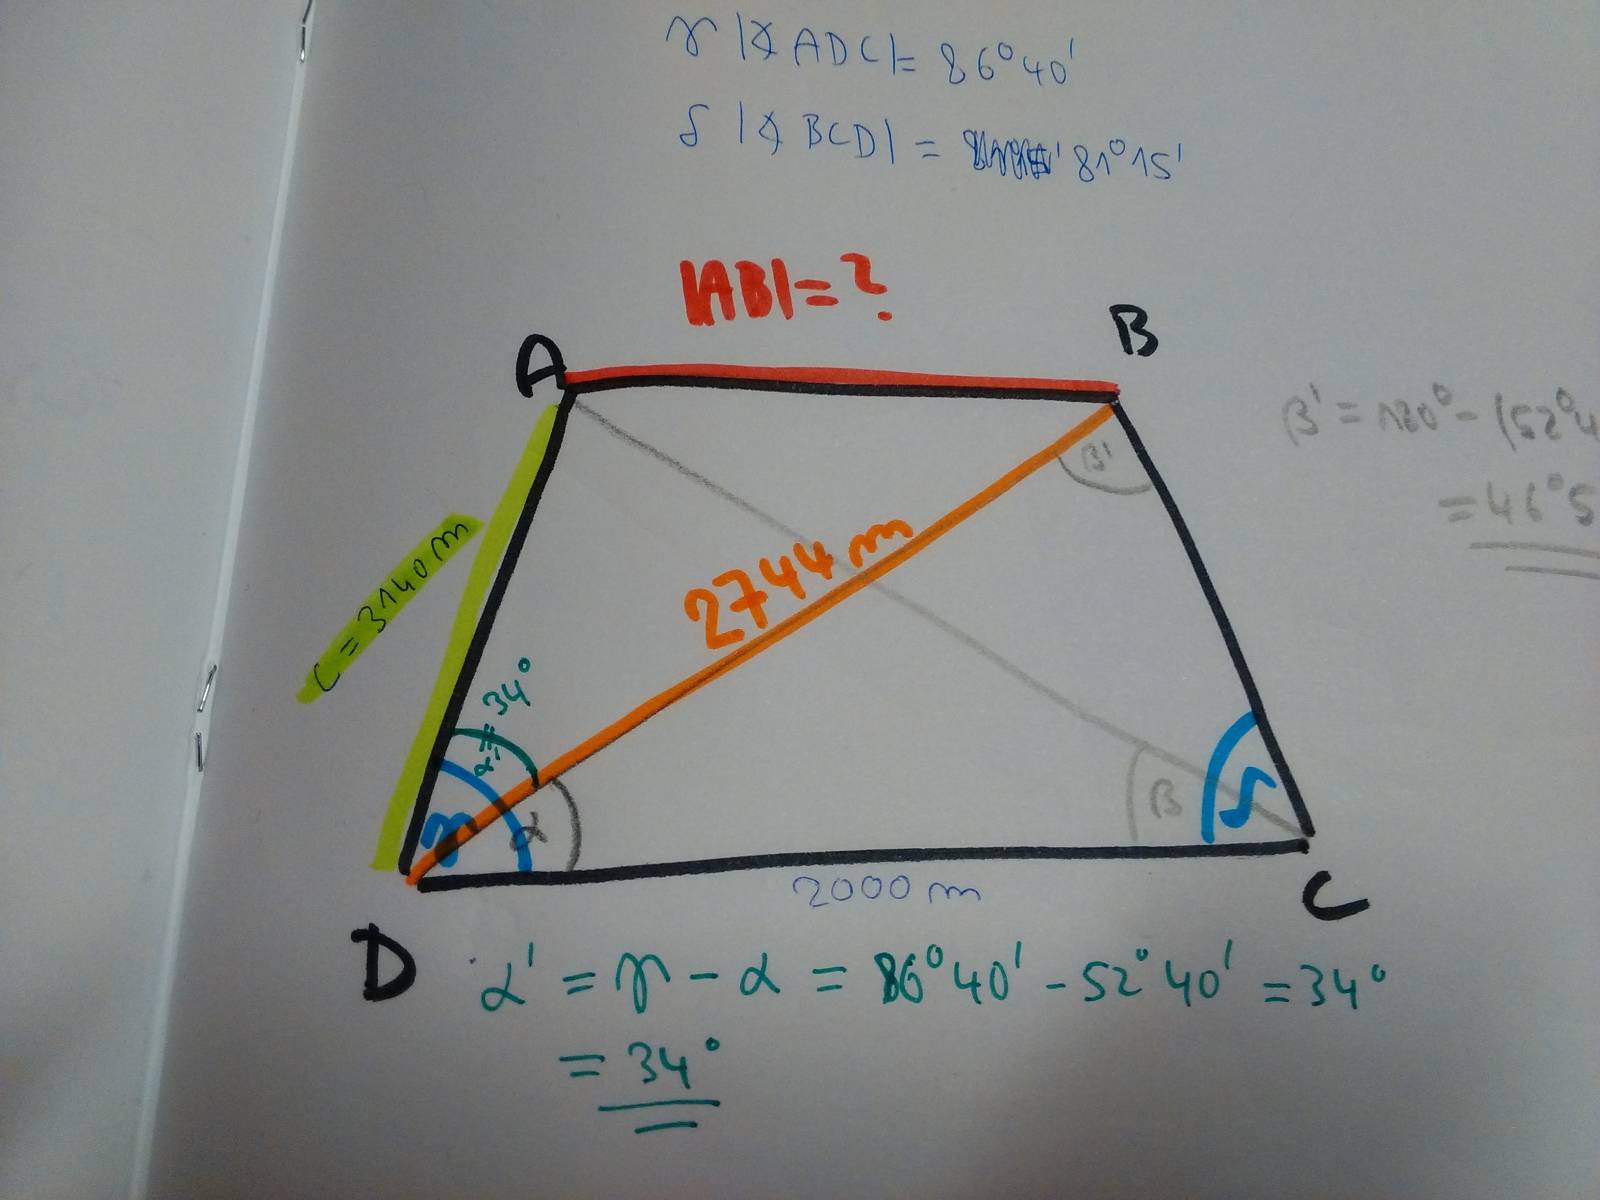 γ |∢ ADC| = 86°40'
δ |∢ BCD| = 81°15'
|AB| = ?
A
B
β' = 180° - (52°4
= 46°5
β'
2744 m
c = 3140 m
α' = 34°
γ
α
β
δ
2000 m
C
D
α' = γ - α = 86°40' - 52°40' = 34°
= 34°